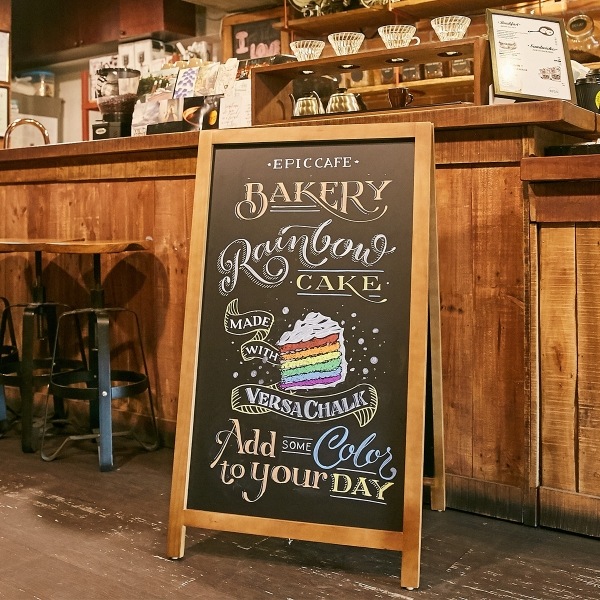 ·EPIC CAFE·
BAKERY
Rainbow
CAKE
MADE
WITH
VERSACHALK
Add SOME Color
to your DAY